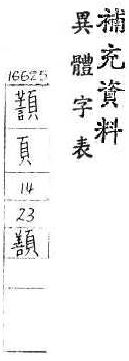 補充資料
異體字表
16625
頁
14
23